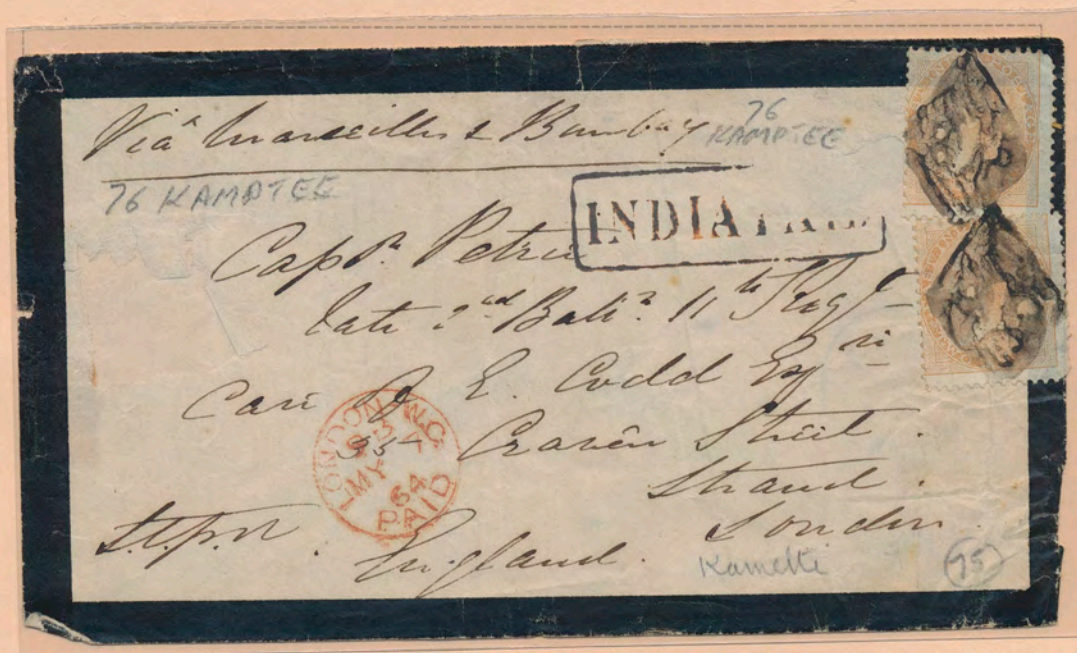 Viâ Marseilles & Bombay
76
KAMPTEE
76 KAMPTEE
INDIA PAID
Capt. Petrie
late 2nd Batn. 11th Regt
Care of E. Codd Esqre
35 Craven Street.
Strand.
London.
England.
LONDON W.C.
MY
64
PAID
Kametti
75